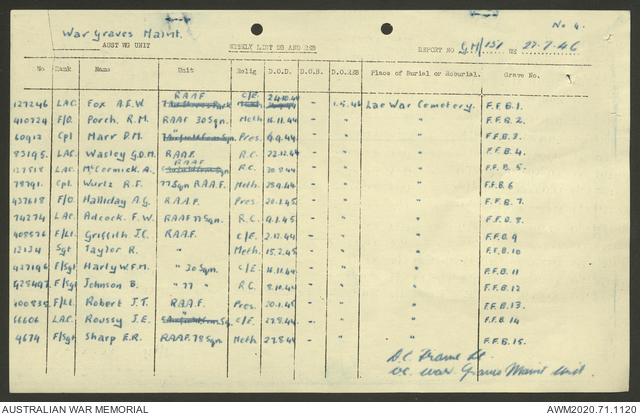 No 4.
War Graves Maint.
AUST WG UNIT WEEKLY LIST DB AND REB REPORT NO GM/151 WE 27-7-46
No Rank Name Unit Relig D.O.D. D.O.B. D.O.REB Place of Burial or Reburial. Grave No.
127246 LAC. Fox A.E.W RAAF C/E. - 1.5.46 Lae War Cemetery. F.F.B.1.
410724 F/O. Porch. R.M. RAAF 30 Sqn. Meth 16.11.44 - " " F.F.B.2.
60912 Cpl Marr D.M. " Pres. 9.9.44. - " " F.F.B.3.
83195. LAC. Wasley G.D.M. RAAF. R.C. 22.12.44 - " " F.F.B.4.
127818 LAC. McCormick. A. RAAF R.C. 30.8.44 - " " F.F.B.5.
78791. Cpl. Wurtz R.F. 77 Sqn R.A.A.F. Meth. 29.9.44. - " " F.F.B.6
437618 F/O. Halliday A.G. R.A.A.F. Pres. 20.1.45 - " " F.F.B.7.
74274 LAC. Adcock. F.W. RAAF 77 Sqn. R.C. 9.1.45. - " " F.F.B.8.
408576 F/Lt. Griffith J.C. R.A.A.F. C/E. 2.12.44 - " " F.F.B.9
12134 Sgt Taylor R. " Meth. 15.2.45. - " " F.F.B.10
427196 F/Sgt Harly W.F.M. " 30 Sqn. C/E. 16.11.44 - " " F.F.B.11
F/Sgt Johnson B. " 77 " R.C. 8.10.44 - " " F.F.B.12
F/Lt. Robert J.T. R.A.A.F. Pres. 20.1.45 - " " F.F.B.13.
66606 LAC. Roussy J.E. C/E. 27.8.44 - " " F.F.B.14
9674 F/Sgt Sharp E.R. RAAF. 78 Sqn Meth 27.8.44 - " " F.F.B.15.
Lt.
O.C. War Graves Maint Unit
AUSTRALIAN WAR MEMORIAL AWM2020.71.1120